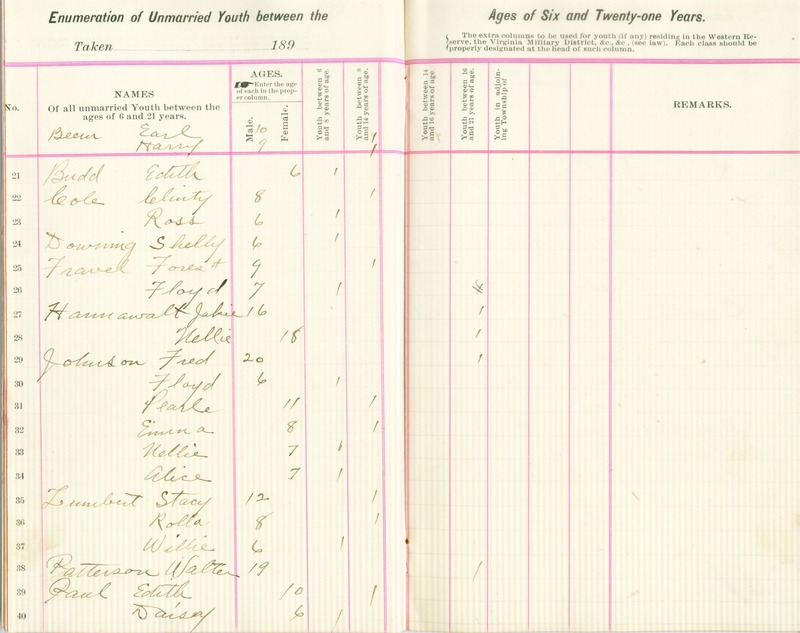 Enumeration of Unmarried Youth between the Ages of Six and Twenty-one Years.
Taken 189
The extra columns to be used for youth (if any) residing in the Western Re-
serve, the Virginia Military District, &c., &c., (see law). Each class should be
properly designated at the head of such column.
No.
NAMES
Of all unmarried Youth between the
ages of 6 and 21 years.
AGES.
Enter the age
of each in the prop-
er column.
Male.
Female.
Youth between 6
and 8 years of age.
Youth between 8
and 14 years of age.
Youth between 14
and 16 years of age.
Youth between 16
and 21 years of age.
Youth in adjoin-
ing Township of
REMARKS.
Beem Earl 10 1
Harry 9 1
21 Budd Edith 6 1
22 Cole Clinty 8 1
23 Ross 6 1
24 Downing Shelly 6 1
25 Fravel Forest 9 1
26 Floyd 7 1
27 Hannawalt Jakie 16 1
28 Nellie 18 1
29 Johnson Fred 20 1
30 Floyd 6 1
31 Pearle 11 1
32 Emma 8 1
33 Nellie 7 1
34 Alice 7 1
35 Lumbert Stacy 12 1
36 Rolla 8 1
37 Willie 6 1
38 Patterson Walter 19 1
39 Paul Edith 10 1
40 Daisy 6 1